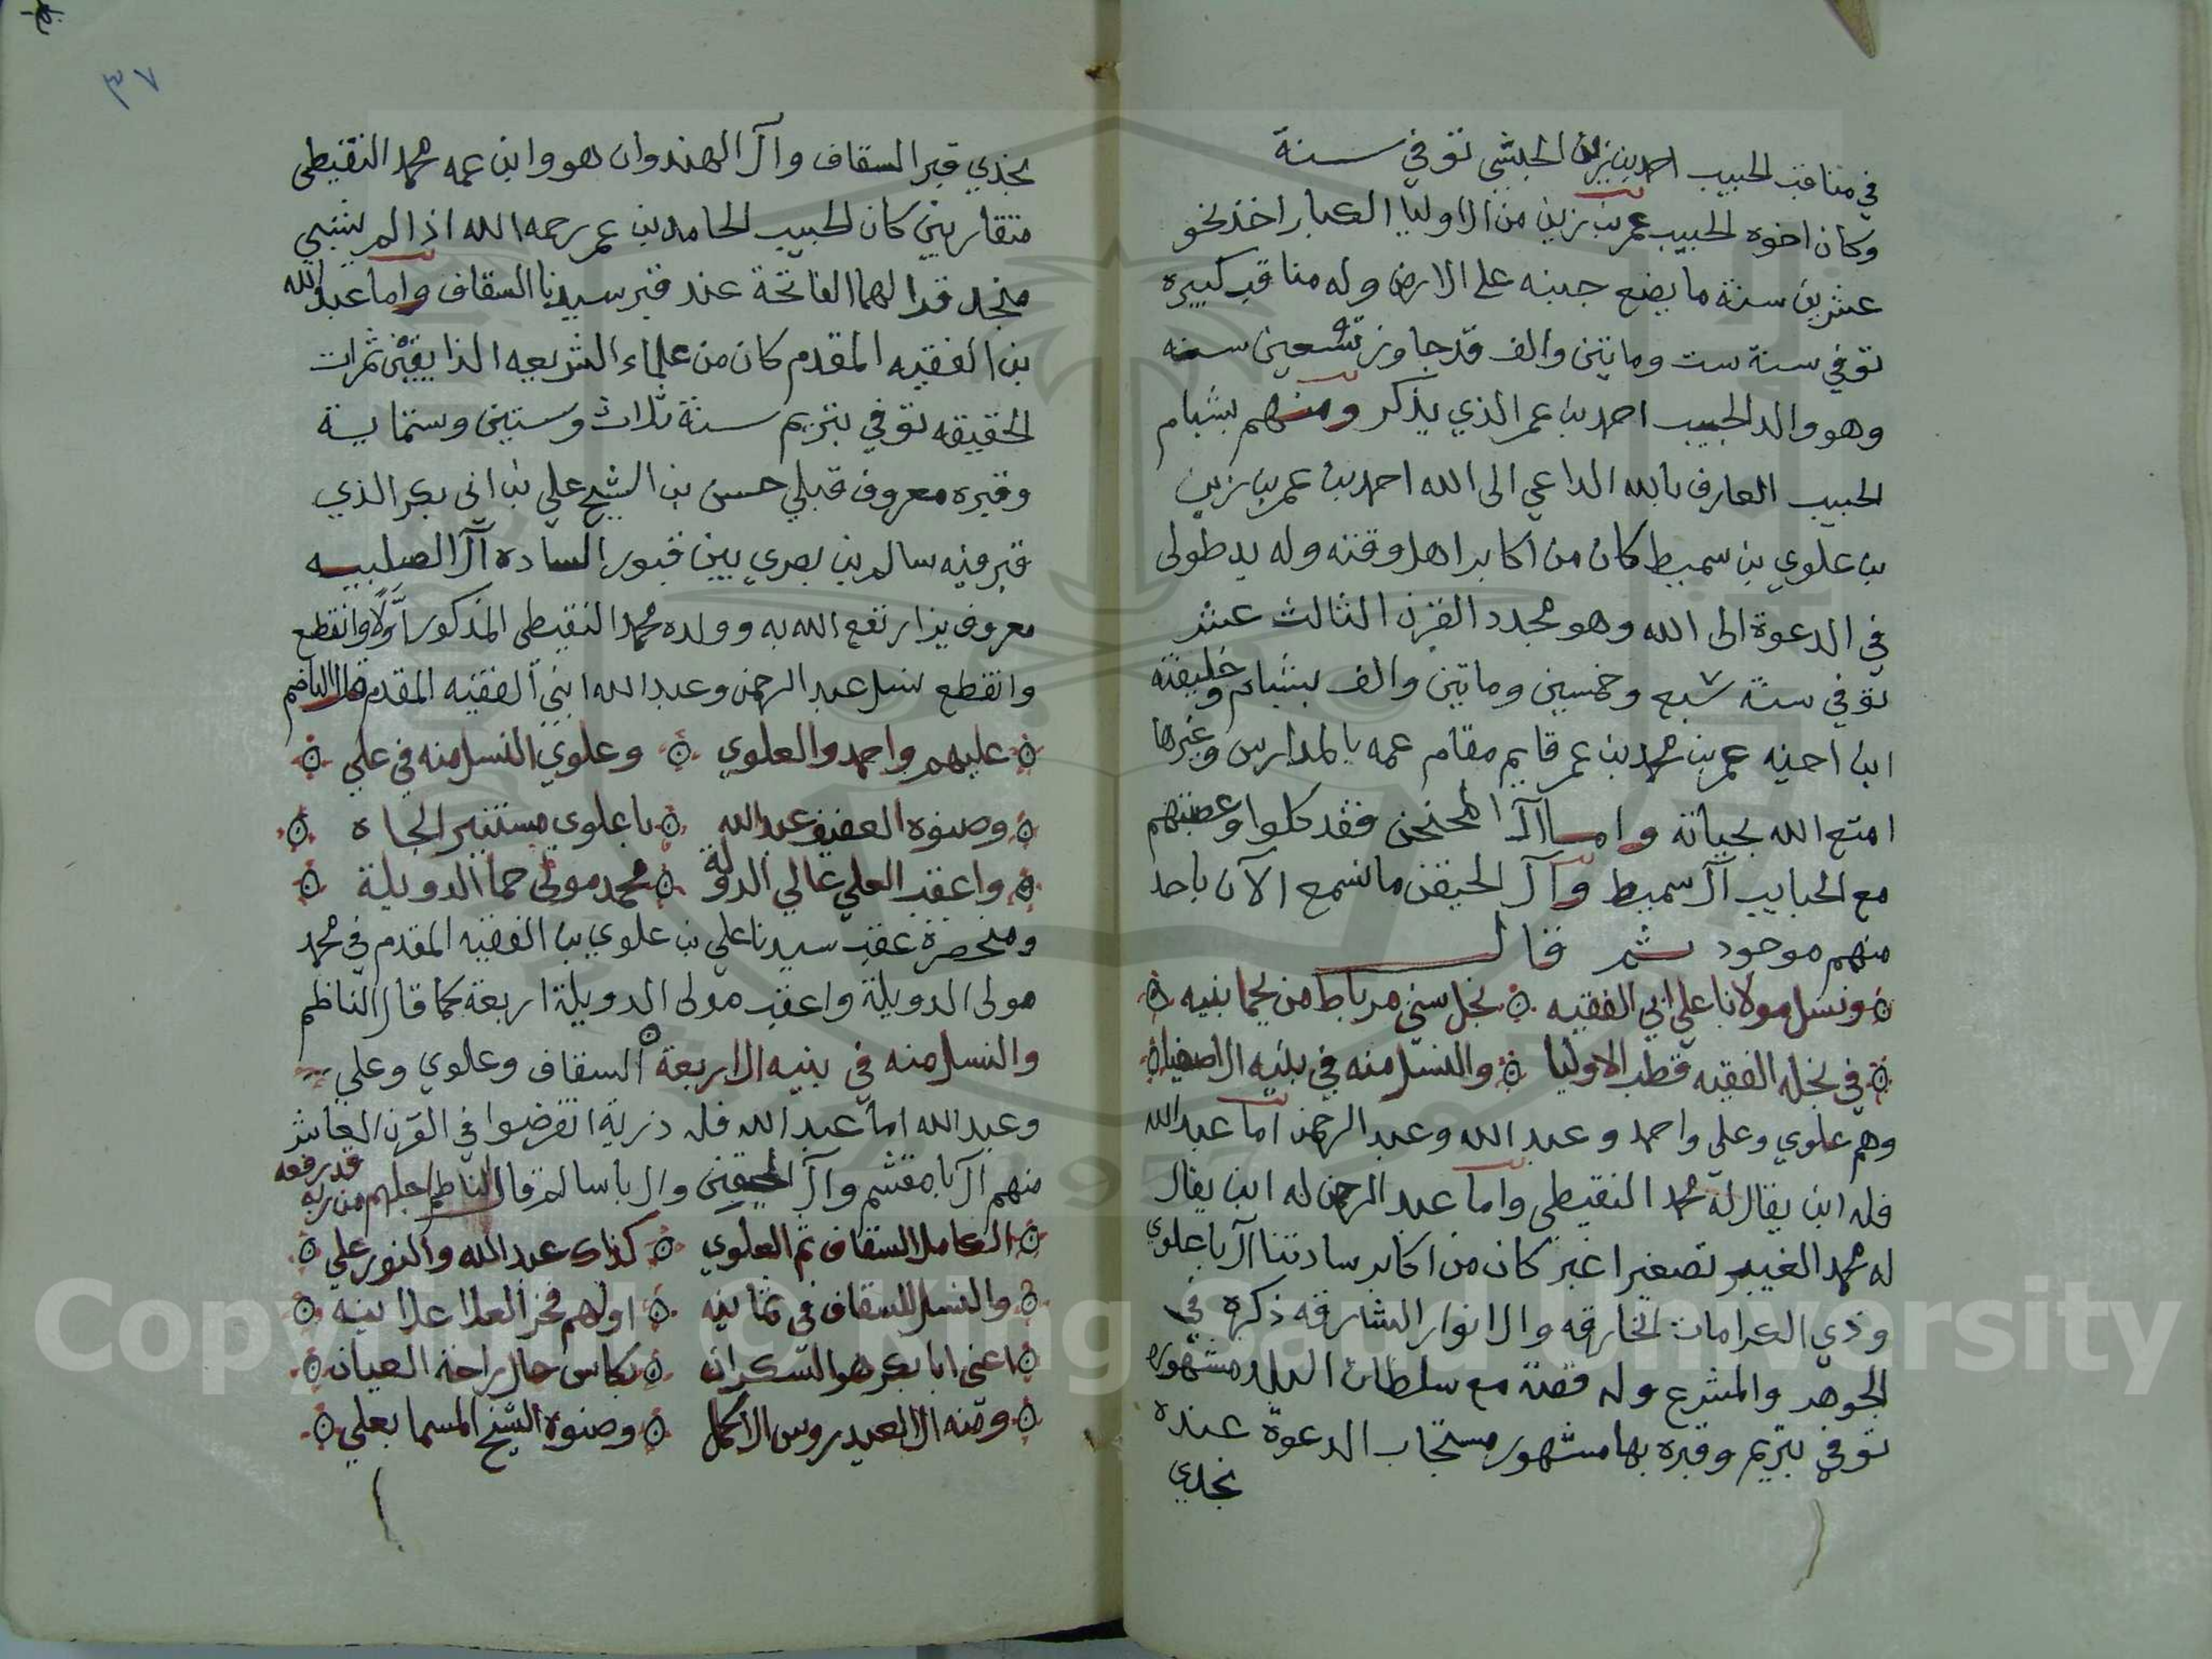 في مناقب الحبيب احمد بن زين الحبشي توفي سنة
وكان اخوه الحبيب عمر بن زين من الاوليا الكبار اخذ نحو
عشرين سنة ما يضع جبنه على الارض وله مناقب كبيره
توفي سنة ست وماتين والف قد جاوز تسعين سنه
وهو والد الحبيب احمد بن عمر الذي يذكر ومنهم بشبام
الحبيب العارف بالله الداعي الى الله احمد بن عمر بن زين
بن علوي بن سميط كان من اكابر اهل وقته وله يد طولى
في الدعوة الى الله وهو مجدد القرن الثالث عشر
توفي سنة سبع وخمسين وماتين والف بشبام وخليفته
ابن اخيه عمر بن محمد بن عمر قايم مقام عمه بالمدارس وغيرها
امتع الله بحياته واما آل المحنحن فقد كلوا وعصبتهم
مع الحبايب آل سميط وآل الحيقن ما نسمع الآن باحد
منهم موجود ثم قال
ونسل مولانا علي ابي الفقيه نجل سني مرباط من يحما بنيه
في نجله الفقيه قطب الاوليا والنسل منه في بنيه الاصفيا
وهم علوي وعلي واحمد وعبد الله وعبد الرحمن اما عبد الله
فله ابن يقال له محمد النقيطي واما عبد الرحمن له ابن يقال
له محمد الغيبر تصغير اغبر كان من اكابر سادتنا آل باعلوي
وذي الكرامات الخارقه والانوار الشارقه ذكره في
الجوهر والمشرع وله قصة مع سلطان البلد مشهوره
توفي بتريم وقبره بها مشهور مستجاب الدعوة عنده
نجدي
٣٧
بنجدي قبر السقاف وآل الهندوان هو وابن عمه محمد النقيطي
متقاربين كان الحبيب الحامد بن عمر رحمه الله اذا لم
منجد قرا لهما الفاتحة عند قبر سيدنا السقاف واما عبد الله
بن الفقيه المقدم كان من علماء الشريعه الذايقين ثمرات
الحقيقه توفي بتريم سنة ثلاث وستين وستماية
وقبره معروف قبلي حسن بن الشيخ علي بن ابي بكر الذي
قبر فيه سالم بن بصري بين قبور الساده آل الصليبيه
معروف يزار نفع الله به وولده محمد النقيطي المذكور اولا وانقطع
وانقطع نسل عبد الرحمن وعبد الله ابني الفقيه المقدم قال الناضم
عليهم واحمد والعلوي وعلوي النسل منه في علي
وصنوه العفيف عبد الله باعلوي مستنير الجاه
واعقب العلي عالي الدولة محمد مولى حما الدويلة
ومنحصرة عقب سيدنا علي بن علوي بن الفقيه المقدم في محمد
مولى الدويلة واعقب مولى الدويلة اربعة كما قال الناظم
والنسل منه في بنيه الاربعة السقاف وعلوي وعلي
وعبد الله اما عبد الله فله ذرية انقرضوا في القرن العاشر
منهم آل بامقشم وآل الحيقن وال باسالم قال الناظم اجلهم من ربه قد رفعه
الكامل السقاف ثم العلوي كذاك عبد الله والنور علي
والنسل للسقاف في ثمانيه اولهم فخر العلا علانيه
اعني ابا بكر هو السكران بكاس حال راحة العيان
ومنه العيدروس الاكمل وصنوه الشيخ المسما بعلي
Copyright © King Saud University
1957